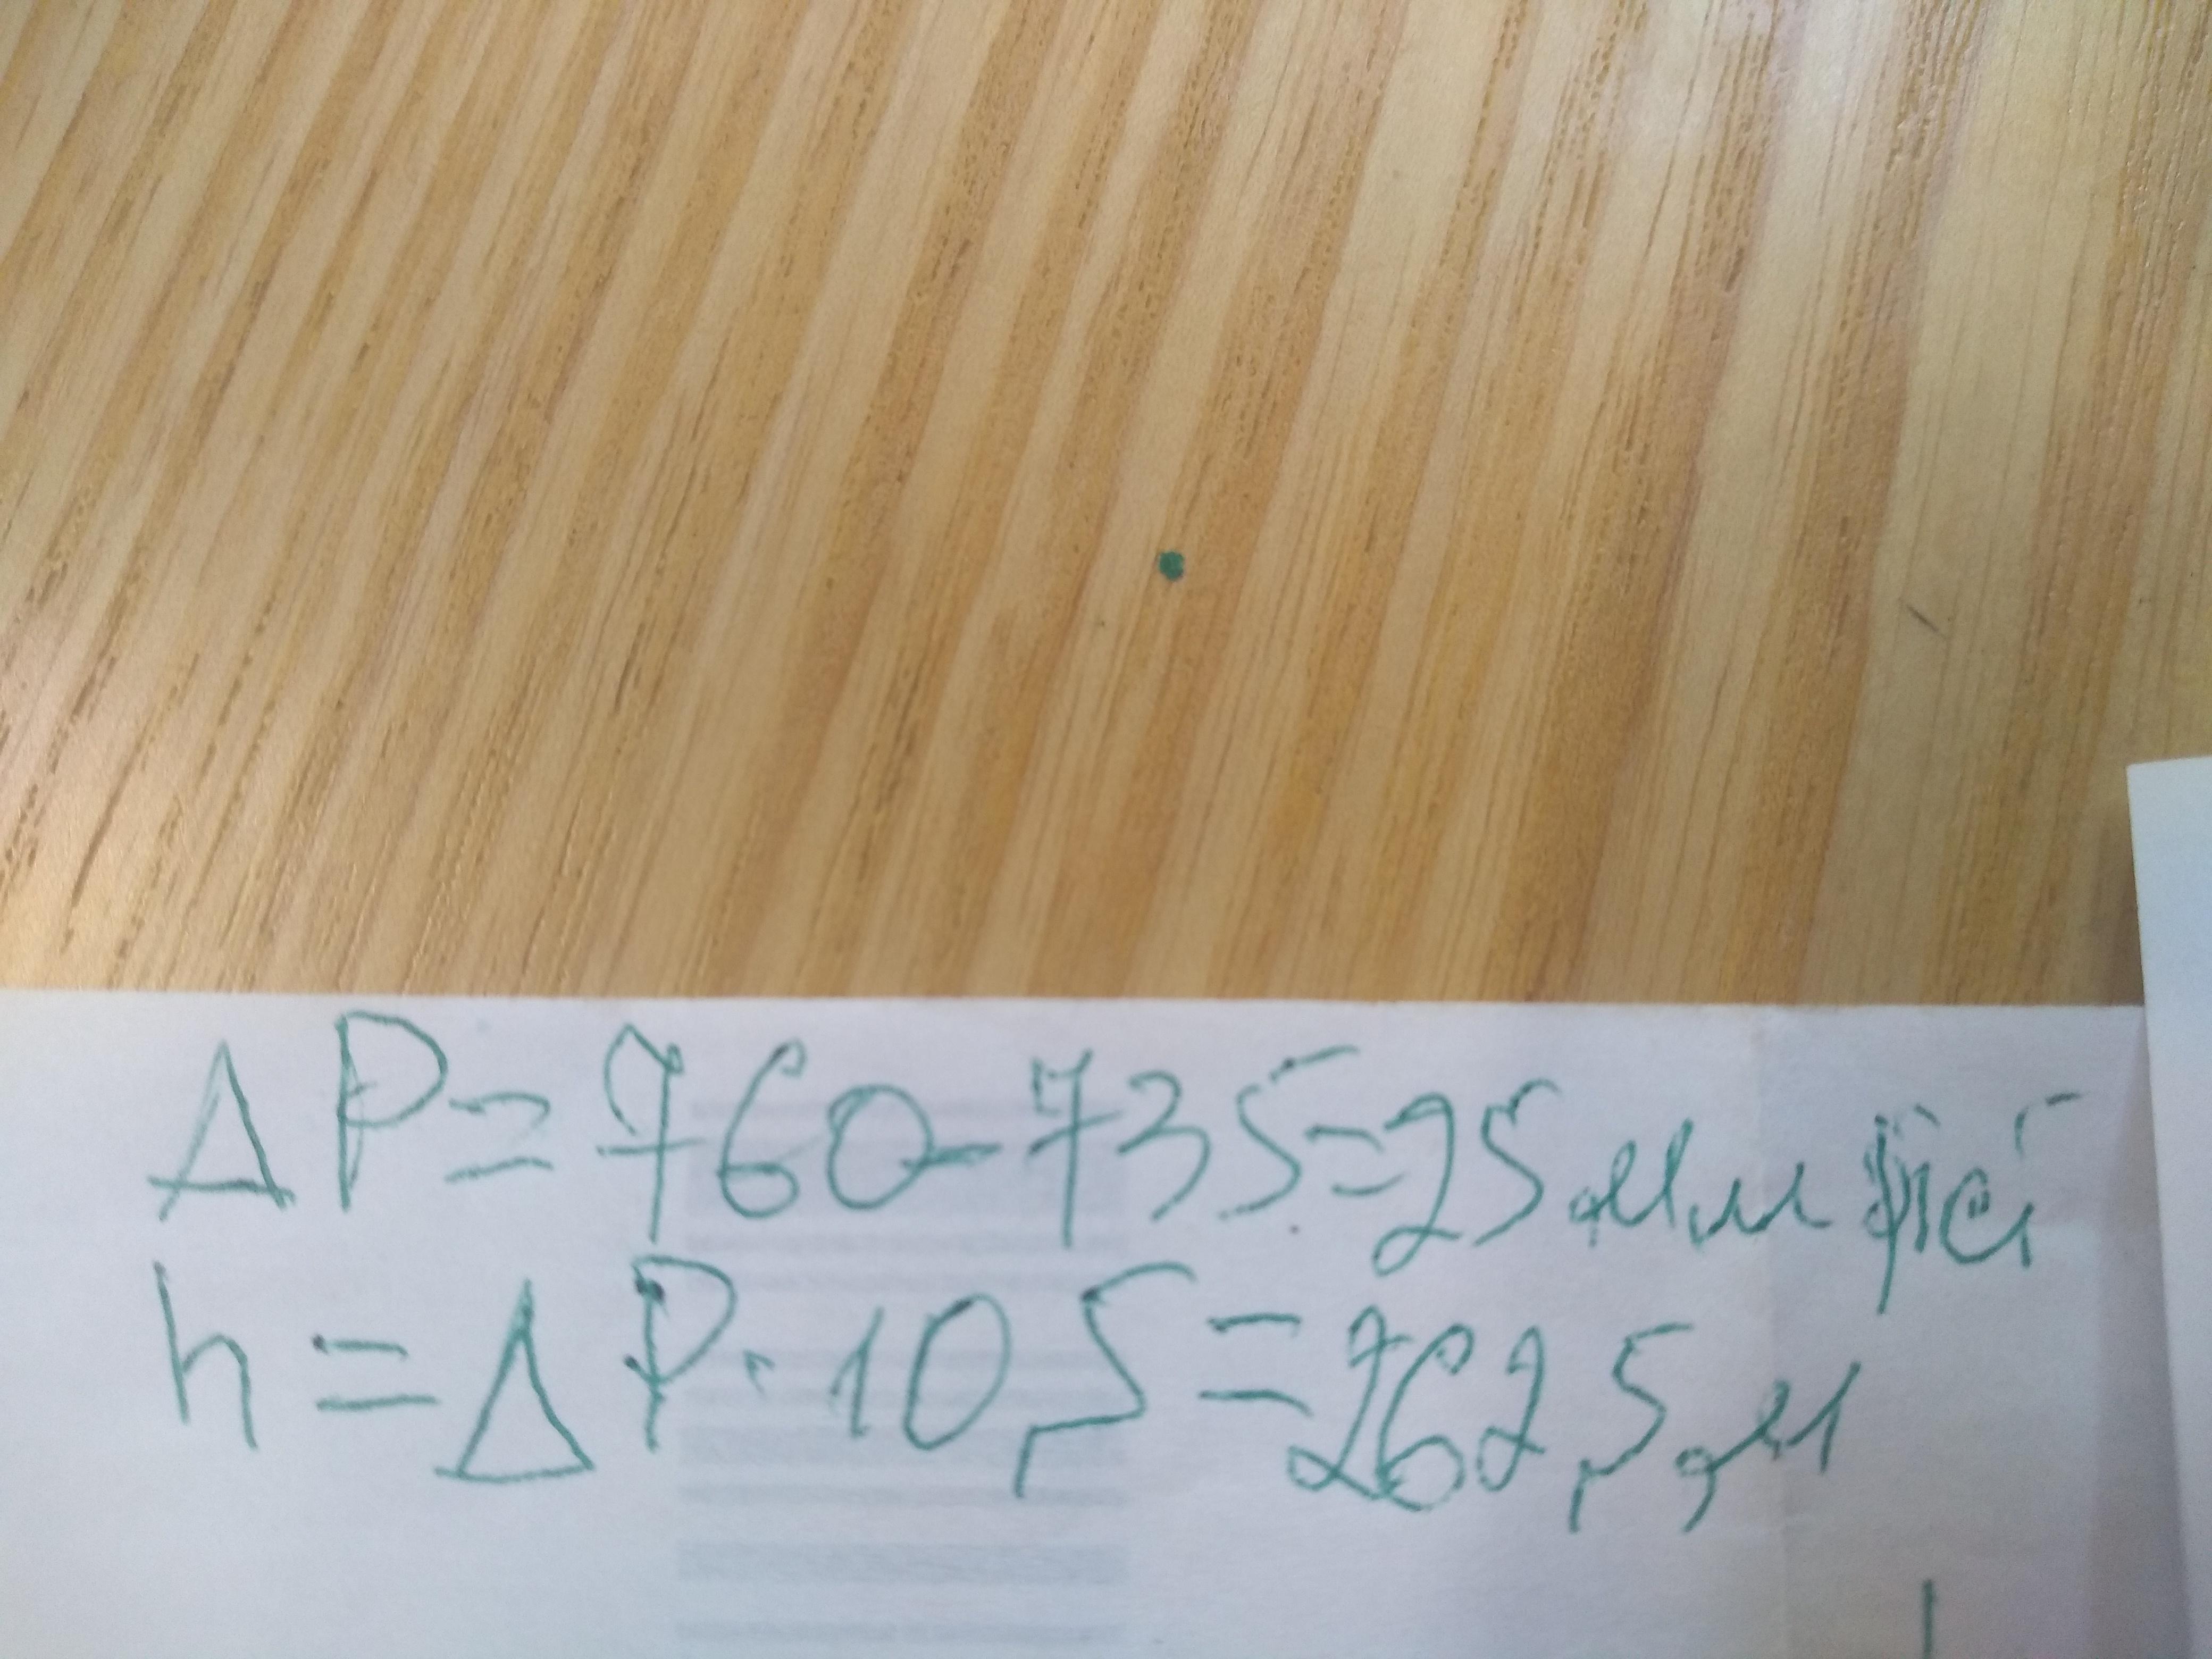 ΔP=760-735=25 мм рт ст
h=ΔP·10,5=262,5 м